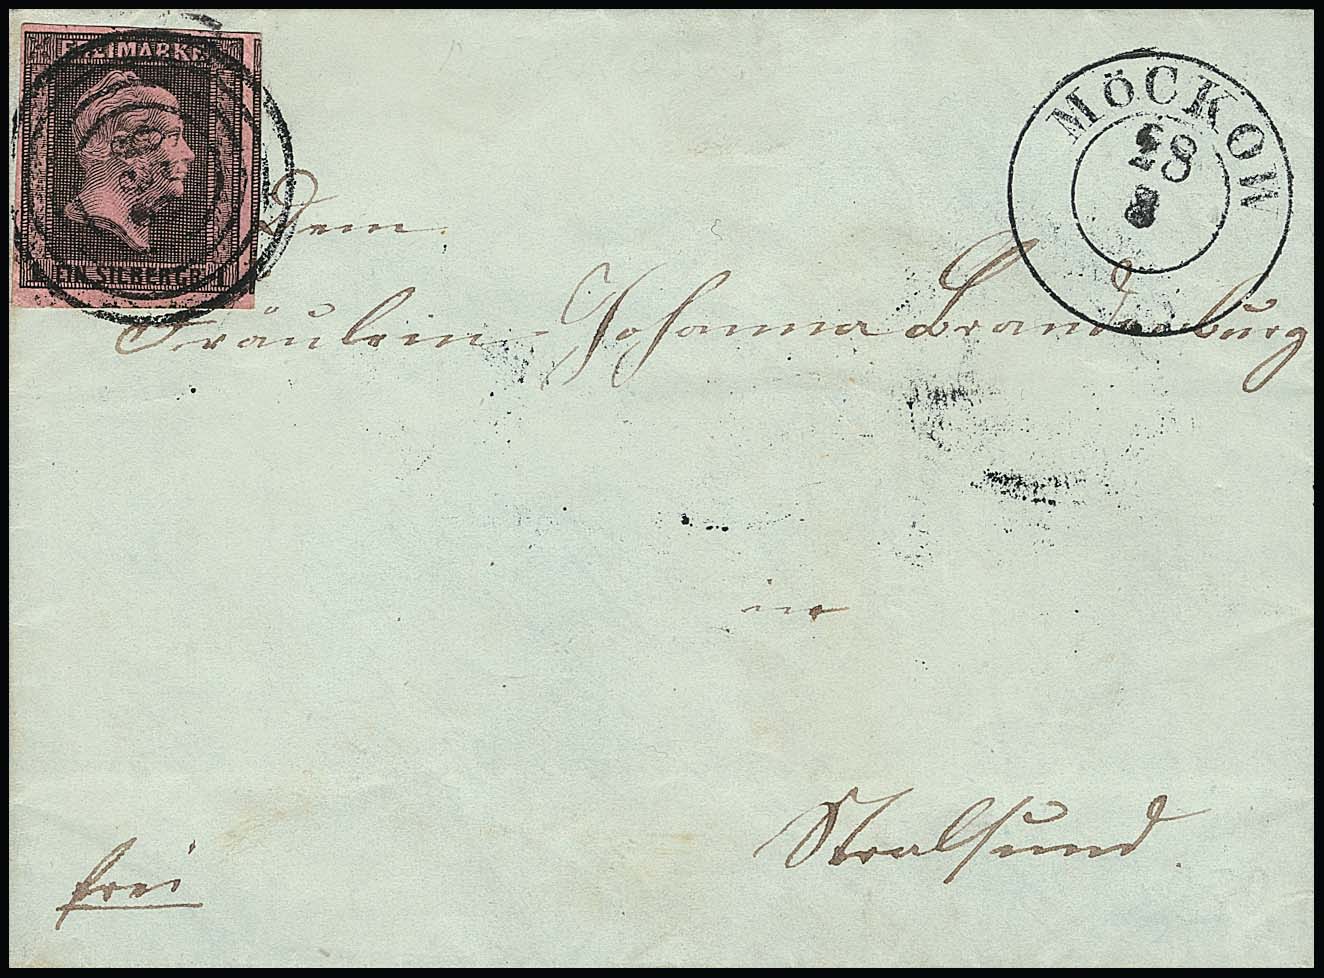 FREIMARKE
EIN SILBERGR
MÖCKOW
28
8
Dem
Fräulein Johanna Brandenburg
in
Stralsund
frei